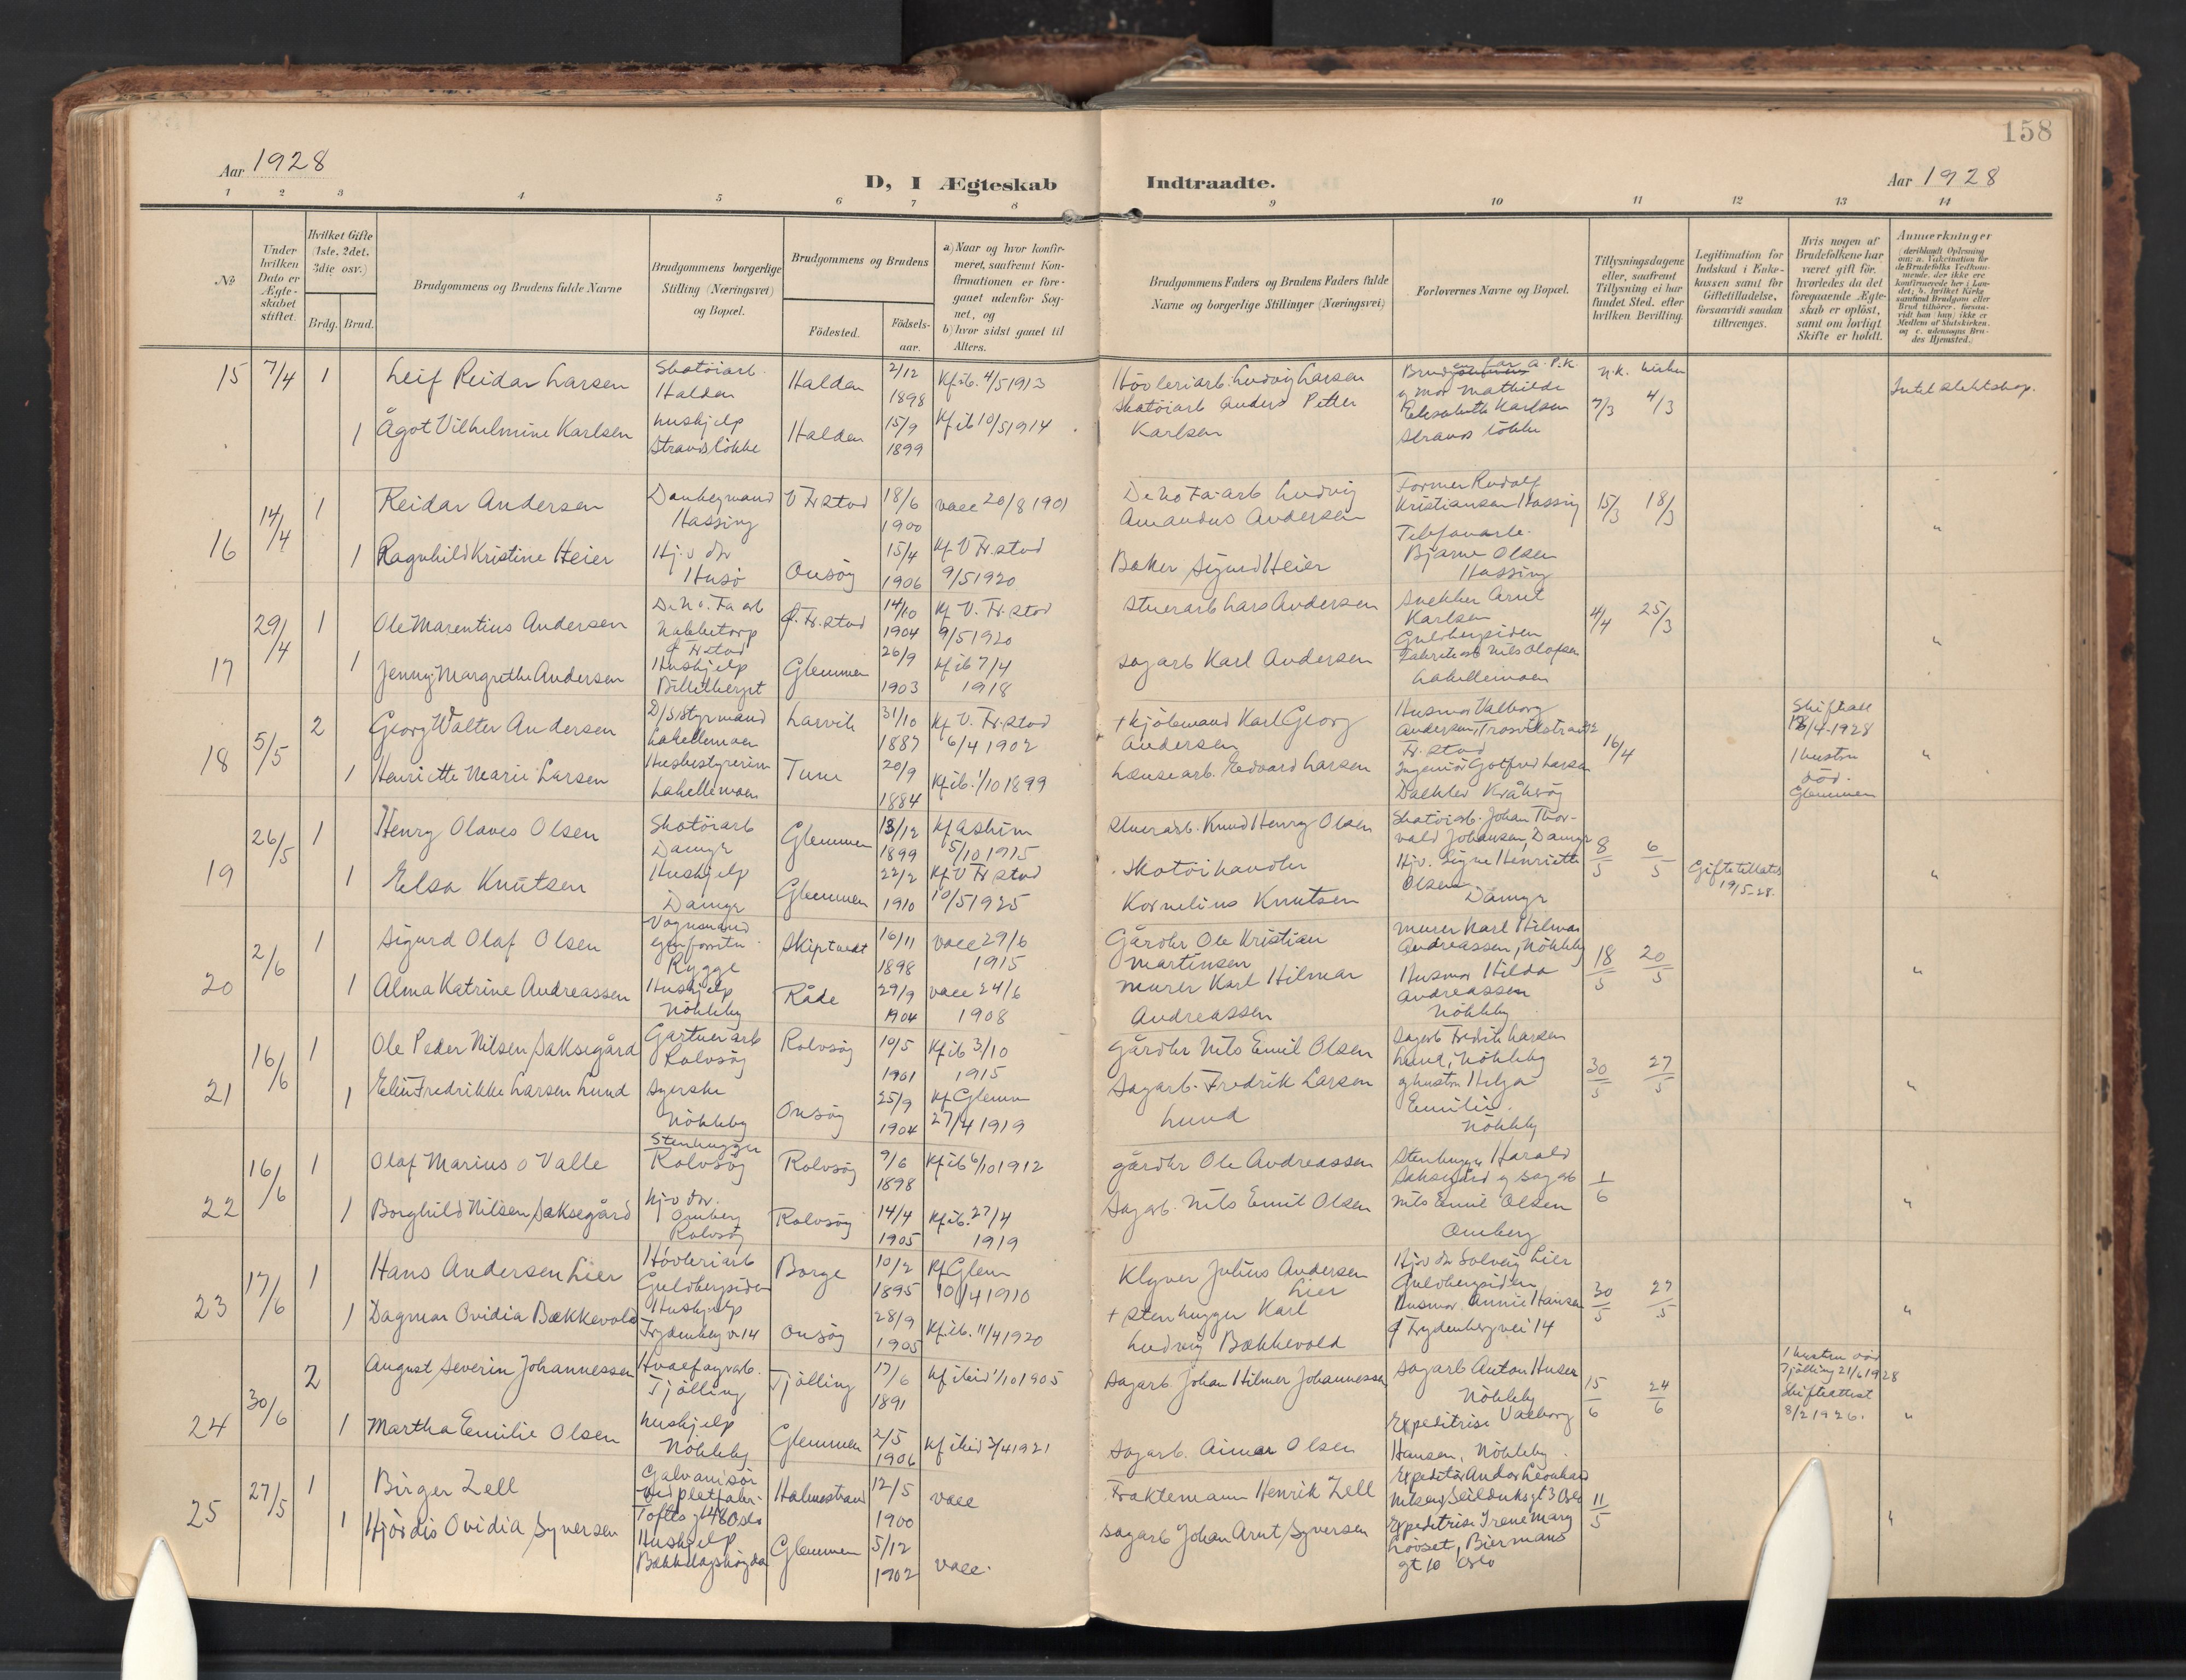 158
Aar 1928
D, I Ægteskab Indtraadte.
Aar 1928
1 2 3 4 5 6 7 8 9 10 11 12 13 14
№
Under hvilken Dato er Ægte-skabet stiftet.
Hvilket Gifte (1ste, 2det, 3die osv.)
Brdg. Brud.
Brudgommens og Brudens fulde Navne
Brudgommens borgerlige Stilling (Næringsvei) og Bopæl.
Brudgommens og Brudens
Födested.
Födsels-aar.
a) Naar og hvor konfir-meret, saafremt Kon-firmationen er fore-gaaet udenfor Sog-net, og
b) hvor sidst gaaet til Alters.
Brudgommens Faders og Brudens Faders fulde Navne og borgerlige Stillinger (Næringsvei)
Forlovernes Navne og Bopæl.
Tillysningsdagene eller, saafremt Tillysning ei har fundet Sted, efter hvilken Bevilling.
Legitimation for Indskud i Enke-kassen samt for Giftetilladelse, forsaavidt saadan tiltrænges.
Hvis nogen af Brudefolkene har været gift før, hvorledes da det foregaaende Ægte-skab er opløst, samt om lovligt Skifte er holdt.
Anmerkninger
15 7/4 1 Leif Reidar Larsen Skotöiarb. Halden Halden 2/12 1898 Kf ib. 4/5 1913 Hövleriarb. Ludvig Larsen
1 Ågot Vilhelmine Karlsen Hushjelp Strandslökke Halden 15/9 1899 Kf ib 10/5 1914 Skotöiarb Anders Petter Karlsen
og mor Mathilde Elisabeth Karlsen 7/3 4/3
Intet slektskap.
16 14/4 1 Reidar Andersen Hassing V Fr.stad 18/6 1900 vacc 20/8 1901 DeNoFa-arb Ludvig Amandus Andersen
Former Rudolf Kristiansen Hassing 15/3 18/3
1 Ragnhild Kristine Heier Hj.v dtr Husö Onsöy 15/4 1906 Kf V Fr.stad 9/5 1920 Baker Sigurd Heier
Telefonarb. Bjarne Olsen Hassing "
17 29/4 1 Ole Marentius Andersen DeNo.Fa arb Nabbetorp Fr.stad 14/10 1904 Kf V. Fr.stad 9/5 1920 Stuerarb Lars Andersen
Snekker Arnt Karlsen Guldbergsiden 4/4 25/3
1 Jenny Margrethe Andersen Hushjelp Glemmen 26/9 1903 Kf ib 7/4 1918 Sagarb Karl Andersen
Nils Olafsen Lahellemoen "
18 5/5 2 Georg Walter Andersen D/S Styrmand Lahellemoen Larvik 31/10 1887 Kf V. Fr.stad 6/4 1902 + Kjölemand Karl Georg Andersen
Husmor Valborg Andersen, Fr.stad 16/4
1 Henriette Marie Larsen Husbestyrerin Lahellemoen Tune 20/9 1884 Kf ib. 1/10 1899 Lænsearb. Edvard Larsen
Ingeniör Gotfred Larsen Kråkeröy
1 hustru död. Glemmen "
19 26/5 1 Henry Olaves Olsen Skotöiarb Damyr Glemmen 13/12 1899 Kf Askim 5/10 1915 Stuerarb. Knud Henry Olsen
Skotöiarb. Johan Thor-vald Johansen, Damyr 8/5 6/5 Giftetillatels 19/5-28.
1 Elsa Knutsen Hushjelp Damyr Glemmen 22/2 1910 Kf V Fr stad 10/5 1925 Skotöihandler Kornelius Knutsen
Hjv. Signe Henriette Olsen Damyr "
20 2/6 1 Sigurd Olaf Olsen Vognmand Rygge Skiptvedt 16/11 1898 vacc 29/6 1915 Gårdbr Ole Kristian Martinsen
Murer Karl Hilmar Andreassen, Nökleby 18/5 20/5
1 Alma Katrine Andreassen Hushjelp Nökleby Råde 29/9 1904 vacc 24/6 1908 Murer Karl Hilmar Andreassen
Husmor Hilda Andreassen Nökleby "
21 16/6 1 Ole Peder Nilsen Saksegård Gartnerarb Rolvsöy Rolvsöy 10/5 1901 Kf ib 3/10 1915 Gårdbr Nils Emil Olsen
Sagarb Fredrik Larsen Lund, Nökleby 30/5 27/5
1 Elin Fredrikke Larsen Lund Syerske Nökleby Onsöy 25/9 1904 Kf Glemm 27/4 1919 Sagarb. Fredrik Larsen Lund
og hustru Helga Emilie. Nökleby "
22 16/6 1 Olaf Marius o Valle Stenhugger Rolvsöy Rolvsöy 9/6 1898 Kf ib 6/10 1912 gårdbr Ole Andreassen
Stenhugger Harald Saksegård og sagarb 1/6
1 Borghild Nilsen Saksegård Hj.v dtr. Omberg Rolvsöy Rolvsöy 14/4 1905 Kf ib. 27/4 1919 Sagarb. Nils Emil Olsen
Nils Emil Olsen Omberg "
23 17/6 1 Hans Andersen Lier Hövleriarb Guldbergsiden Borge 10/2 1895 Kf Glem 10/4 1910 Klyver Julius Andersen Lier
Hjv dtr Solveig Lier Guldbergsiden 30/5 27/5
1 Dagmar Ovidia Bækkevold Hushjelp Frydenberg v 14 Onsöy 28/9 1905 Kf.ib. 11/4 1920 + Stenhugger Karl Ludvig Bækkevold
Husmor Annie Hansen Frydenbergvei 14 "
24 30/6 2 August Severin Johannessen Tjölling Tjölling 17/6 1891 Kf ibid 1/10 1905 Sagarb. Johan Hilmer Johannessen
Sagarb Anton Huser Nökleby 15/6 24/6
1 hustru död Tjölling 21/6 1928 Skifteattest 8/2 1926.
1 Martha Emilie Olsen Hushjelp Nökleby Glemmen 2/5 1906 Kf ibid 3/4 1921 Sagarb. Aimar Olsen
Expeditrise Valborg Hansen, Nökleby "
25 27/5 1 Birger Zell Galvanisör Toftes gt 48 Oslo Holmestrand 12/5 1900 vacc Fraktemann Henrik Zell
Nilsen, Seilduksgt 3 Oslo 11/5
1 Hjördis Ovidia Syversen Hushjelp Glemmen 5/12 1902 vacc. Sagarb Johan Arnt Syversen
Expeditrise Irene Marg Lövset, Biermanns gt 10 Oslo "